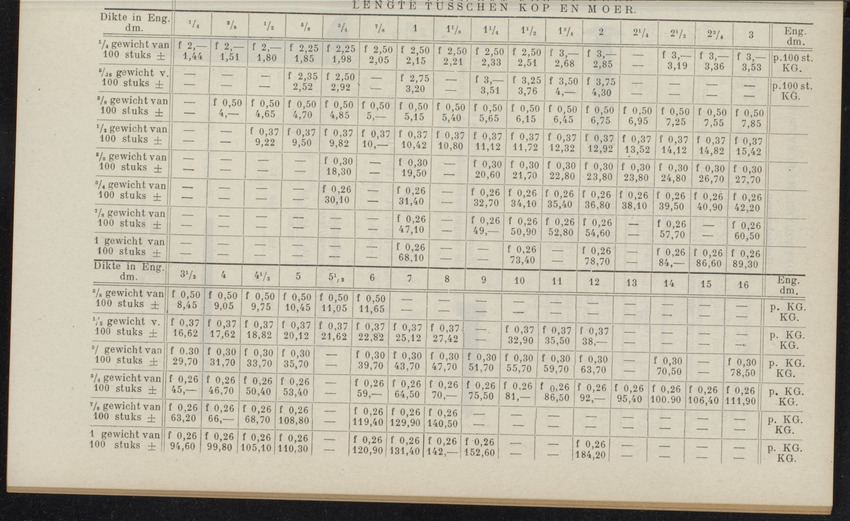 LENGTE TUSSCHEN KOP EN MOER.
Dikte in Eng. dm. 1/4 3/8 1/2 5/8 3/4 7/8 1 1 1/8 1 1/4 1 1/2 1 3/4 2 2 1/4 2 1/2 2 3/4 3 Eng. dm.
1/4 gewicht van f 2,— f 2,— f 2,— f 2,25 f 2,25 f 2,50 f 2,50 f 2,50 f 2,50 f 2,50 f 3,— f 3,— — f 3,— f 3,— f 3,— p.100 st.
100 stuks ± 1,44 1,51 1,80 1,85 1,98 2,05 2,15 2,21 2,33 2,51 2,68 2,85 — 3,19 3,36 3,53 KG.
5/16 gewicht v. — — — f 2,35 f 2,50 — f 2,75 — f 3,— f 3,25 f 3,50 f 3,75 — — — — p.100 st.
100 stuks ± — — — 2,52 2,92 — 3,20 — 3,51 3,76 4,— 4,30 — — — — KG.
3/8 gewicht van — f 0,50 f 0,50 f 0,50 f 0,50 f 0,50 f 0,50 f 0,50 f 0,50 f 0,50 f 0,50 f 0,50 f 0,50 f 0,50 f 0,50 f 0,50
100 stuks ± — 4,— 4,65 4,70 4,85 5,— 5,15 5,40 5,65 6,15 6,45 6,75 6,95 7,25 7,55 7,85
1/2 gewicht van — — f 0,37 f 0,37 f 0,37 f 0,37 f 0,37 f 0,37 f 0,37 f 0,37 f 0,37 f 0,37 f 0,37 f 0,37 f 0,37 f 0,37
100 stuks ± — — 9,22 9,50 9,82 10,— 10,42 10,80 11,12 11,72 12,32 12,92 13,52 14,12 14,82 15,42
gewicht van — — — — f 0,30 — f 0,30 — f 0,30 f 0,30 f 0,30 f 0,30 f 0,30 f 0,30 f 0,30 f 0,30
100 stuks ± — — — — 18,30 — 19,50 — 20,60 21,70 22,80 23,80 23,80 24,80 26,70 27,70
3/4 gewicht van — — — — f 0,26 — f 0,26 — f 0,26 f 0,26 f 0,26 f 0,26 f 0,26 f 0,26 f 0,26 f 0,26
100 stuks ± — — — — 30,10 — 31,40 — 32,70 34,10 35,40 36,80 38,10 39,50 40,90 42,20
7/8 gewicht van — — — — — — f 0,26 — f 0,26 f 0,26 f 0,26 f 0,26 — f 0,26 — f 0,26
100 stuks ± — — — — — — 47,10 — 49,— 50,90 52,80 54,60 — 57,70 — 60,50
1 gewicht van — — — — — — f 0,26 — — f 0,26 — f 0,26 — f 0,26 f 0,26 f 0,26
100 stuks ± — — — — — — 68,10 — — 73,40 — 78,70 — 84,— 86,60 89,30
Dikte in Eng. dm. 3 1/2 4 4 1/2 5 5 1/2 6 7 8 9 10 11 12 13 14 15 16 Eng. dm.
3/8 gewicht van f 0,50 f 0,50 f 0,50 f 0,50 f 0,50 f 0,50 — — — — — — — — — — p. KG.
100 stuks ± 8,45 9,05 9,75 10,45 11,05 11,65 — — — — — — — — — — KG.
1/2 gewicht v. f 0,37 f 0,37 f 0,37 f 0,37 f 0,37 f 0,37 f 0,37 f 0,37 — f 0,37 f 0,37 f 0,37 — — — — p. KG.
100 stuks ± 16,62 17,62 18,82 20,12 21,62 22,82 25,12 27,42 — 32,90 35,50 38,— — — — — KG.
5/ gewicht van f 0.30 f 0,30 f 0,30 f 0,30 — f 0,30 f 0,30 f 0,30 f 0,30 f 0,30 f 0,30 f 0,30 — f 0,30 — f 0,30 p. KG.
100 stuks ± 29,70 31,70 33,70 35,70 — 39,70 43,70 47,70 51,70 55,70 59,70 63,70 — 70,50 — 78,50 KG.
3/4 gewicht van f 0,26 f 0,26 f 0,26 f 0,26 — f 0,26 f 0,26 f 0,26 f 0,26 f 0,26 f 0,26 f 0,26 f 0,26 f 0,26 f 0,26 f 0,26 p. KG.
100 stuks ± 45,— 46,70 50,40 53,40 — 59,— 64,50 70,— 75,50 81,— 86,50 92,— 95,40 100.90 106,40 111,90 KG.
7/8 gewicht van f 0,26 f 0,26 f 0,26 f 0,26 — f 0,26 f 0,26 f 0,26 — — — — — — — — p. KG.
100 stuks ± 63,20 66,— 68,70 108,80 — 119,40 129,90 140,50 — — — — — — — — KG.
1 gewicht van f 0,26 f 0,26 f 0,26 f 0,26 — f 0,26 f 0,26 f 0,26 f 0,26 — — f 0,26 — — — — p. KG.
100 stuks ± 94,60 99,80 105,10 110,30 — 120,90 131,40 142,— 152,60 — — 184,20 — — — — KG.